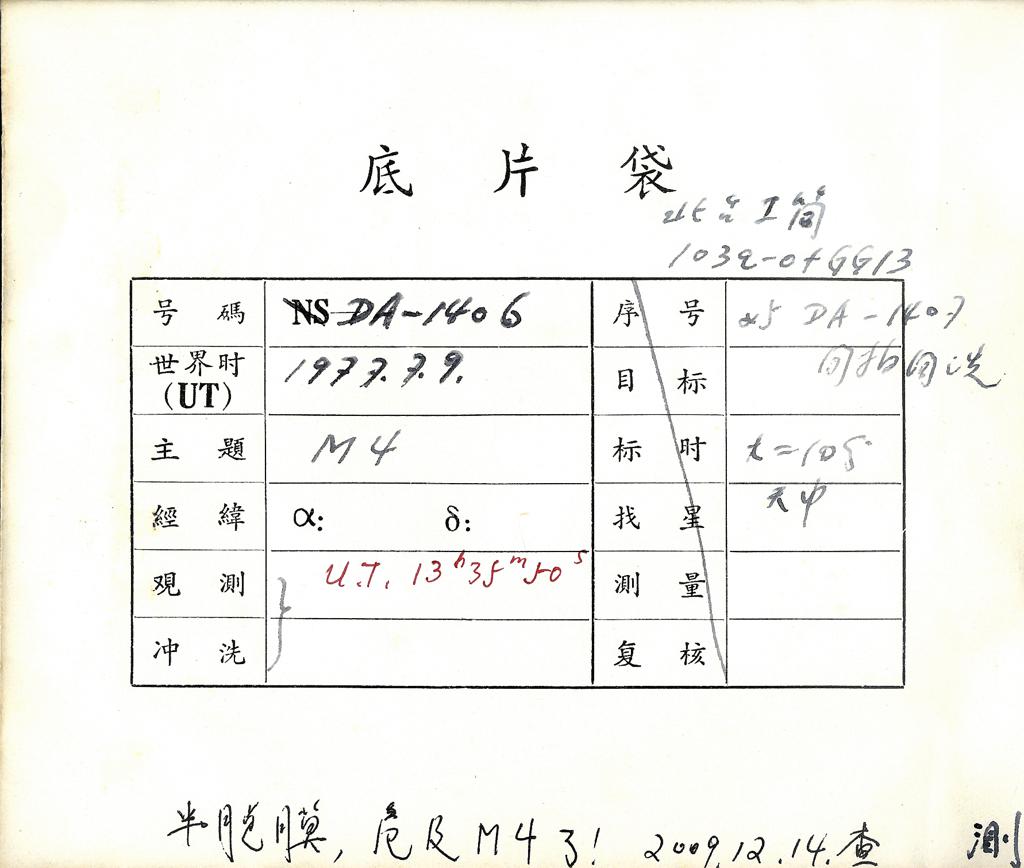 底片袋
北台工筒
103a-O+GG13
号碼 NS DA-1406 序号 与 DA-1407
同拍同洗
世界时(UT) 1977.7.9. 目标
主題 M4 标时 t=10分
經緯 α: δ: 找星 天中
观測 U.T. 13h35m50s 測量
冲洗 复核
半脱膜, 危及M4了! 2009.12.14.查
測